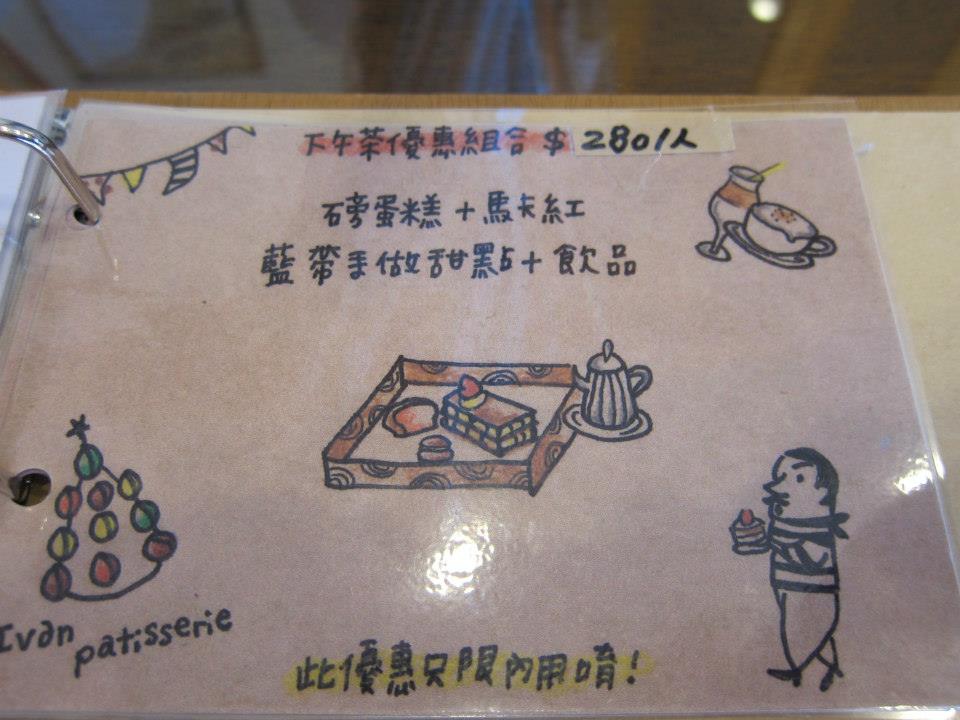 下午茶優惠組合$280/人
磅蛋糕+馬卡紅
藍帶手做甜點+飲品
Ivan
patisserie
此優惠只限內用唷!